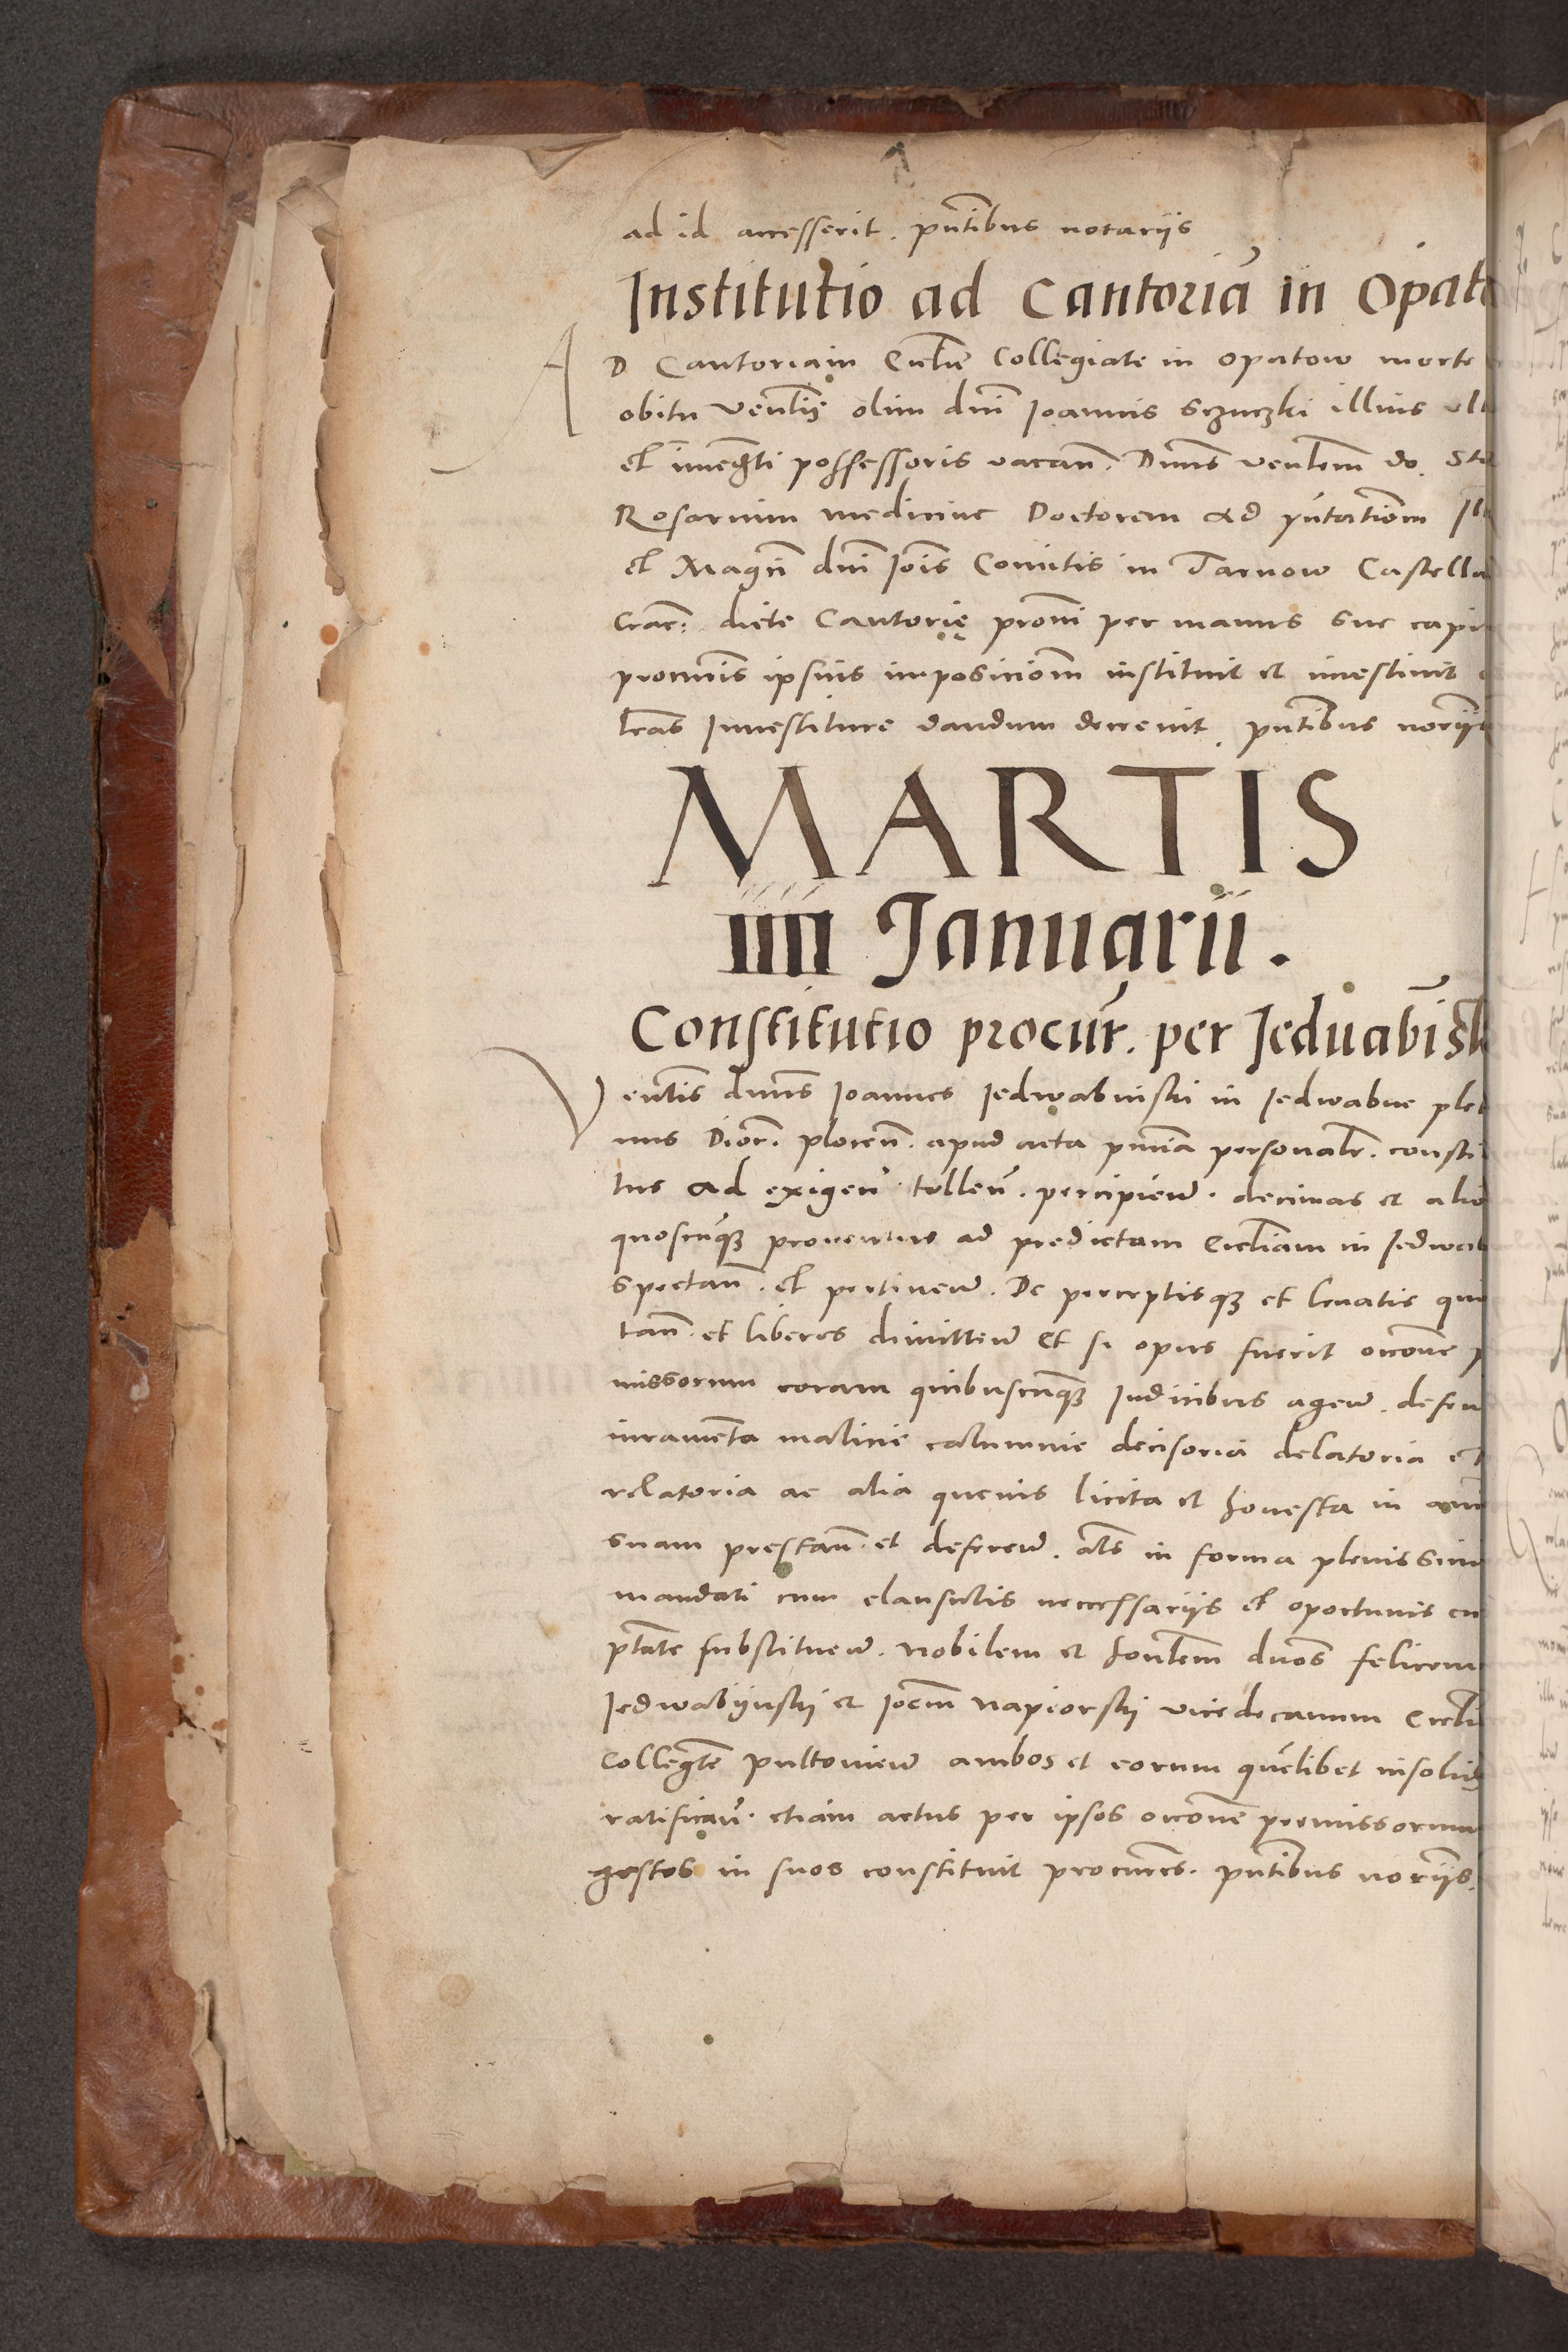 ad id accesserit. pñtibus notariis
Institutio ad Cantoriã in Opato
AD Cantoriam Eccłie Collegiate in Opatow morte
obitu Veñlis olim dñi Ioannis Sczuczki illius ult
et possessoris vacañ. Dñus veñlem do. Sta
Rosarium medicine Doctorem ad pñtationem Ill
et Magñ dñi Ioĩs Comitis in Tarnow Castella
Crac: dicte Cantorię per manus sue capi
ipsius imposicionem instituit et investivit
lras Investiture dandum decrevit. pñtibus noriis
MARTIS
IIII Januarii.
Constitutio procur̃. per Jeduabĩsk
Veñlis dñus Ioannes Jedwabinski in Jedwabne pleb
nus Dioc. plocen̄. apud acta personalr̃. consti
tus ad exigeñ tolleñ. percipieñ. decimas et alio
quoscũq3 proventus ad predictam Eccłiam in Jedwab
spectañ. et pertineñ. De perceptisq3 et levatis qui
tañ. et liberos dimitteñ Et si opus fuerit occone p
missorum coram quibuscũq3 Iudicibus ageñ. defen
iuramenta malicie calumnie decisoria delatoria et
relatoria ac alia quevis licita et honesta in
suam prestañ. et defereñ. als in forma plenissim
mandati cum clausulis necessariis et oportunis cu
ptate substitueñ. Nobilem et hoñlem dños felicem
Jedwabijnskij et Napiorskij vicedecanum Eccłie
Collegte Pultovieñ ambos et eorum quelibet insolid
ratificañ. etiam actus per ipsos occone premissorum
gestos in suos constituit procures. pñtibus noriis.